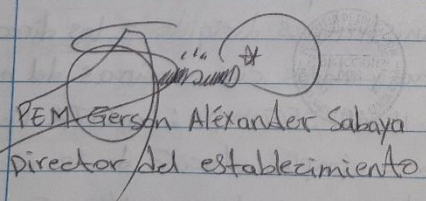 PEM Gerson Aléxander Sabaya
Director del establecimiento